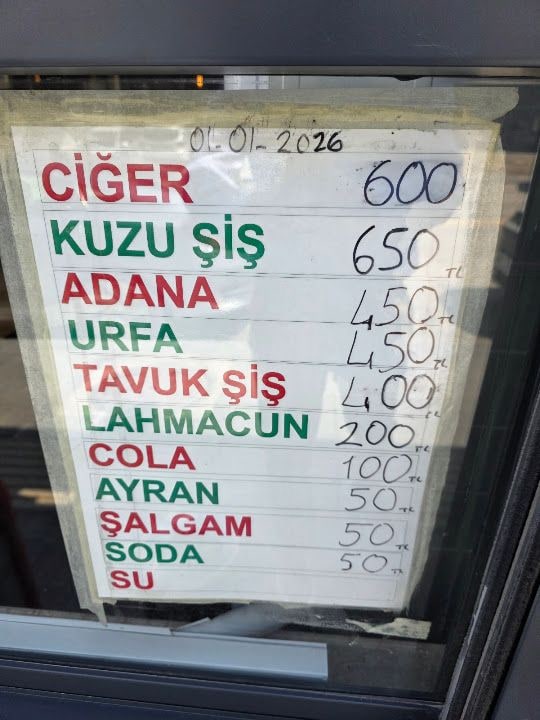 01-01-2026
CİĞER 600
KUZU ŞİŞ 650 TL
ADANA 450 TL
URFA 450 TL
TAVUK ŞİŞ 400 TL
LAHMACUN 200 TL
COLA 100 TL
AYRAN 50 TL
ŞALGAM 50 TL
SODA 50 TL
SU